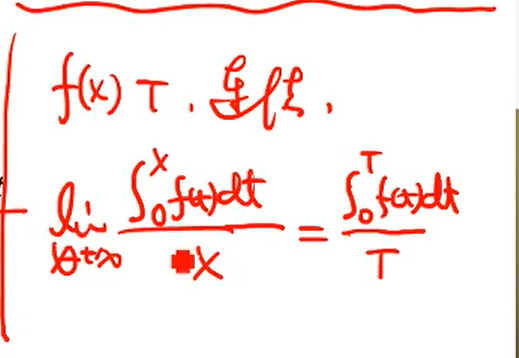 f(x) T. 连续.
lim x→+∞ ∫₀ˣ f(t)dt / x = ∫₀ᵀ f(t)dt / T